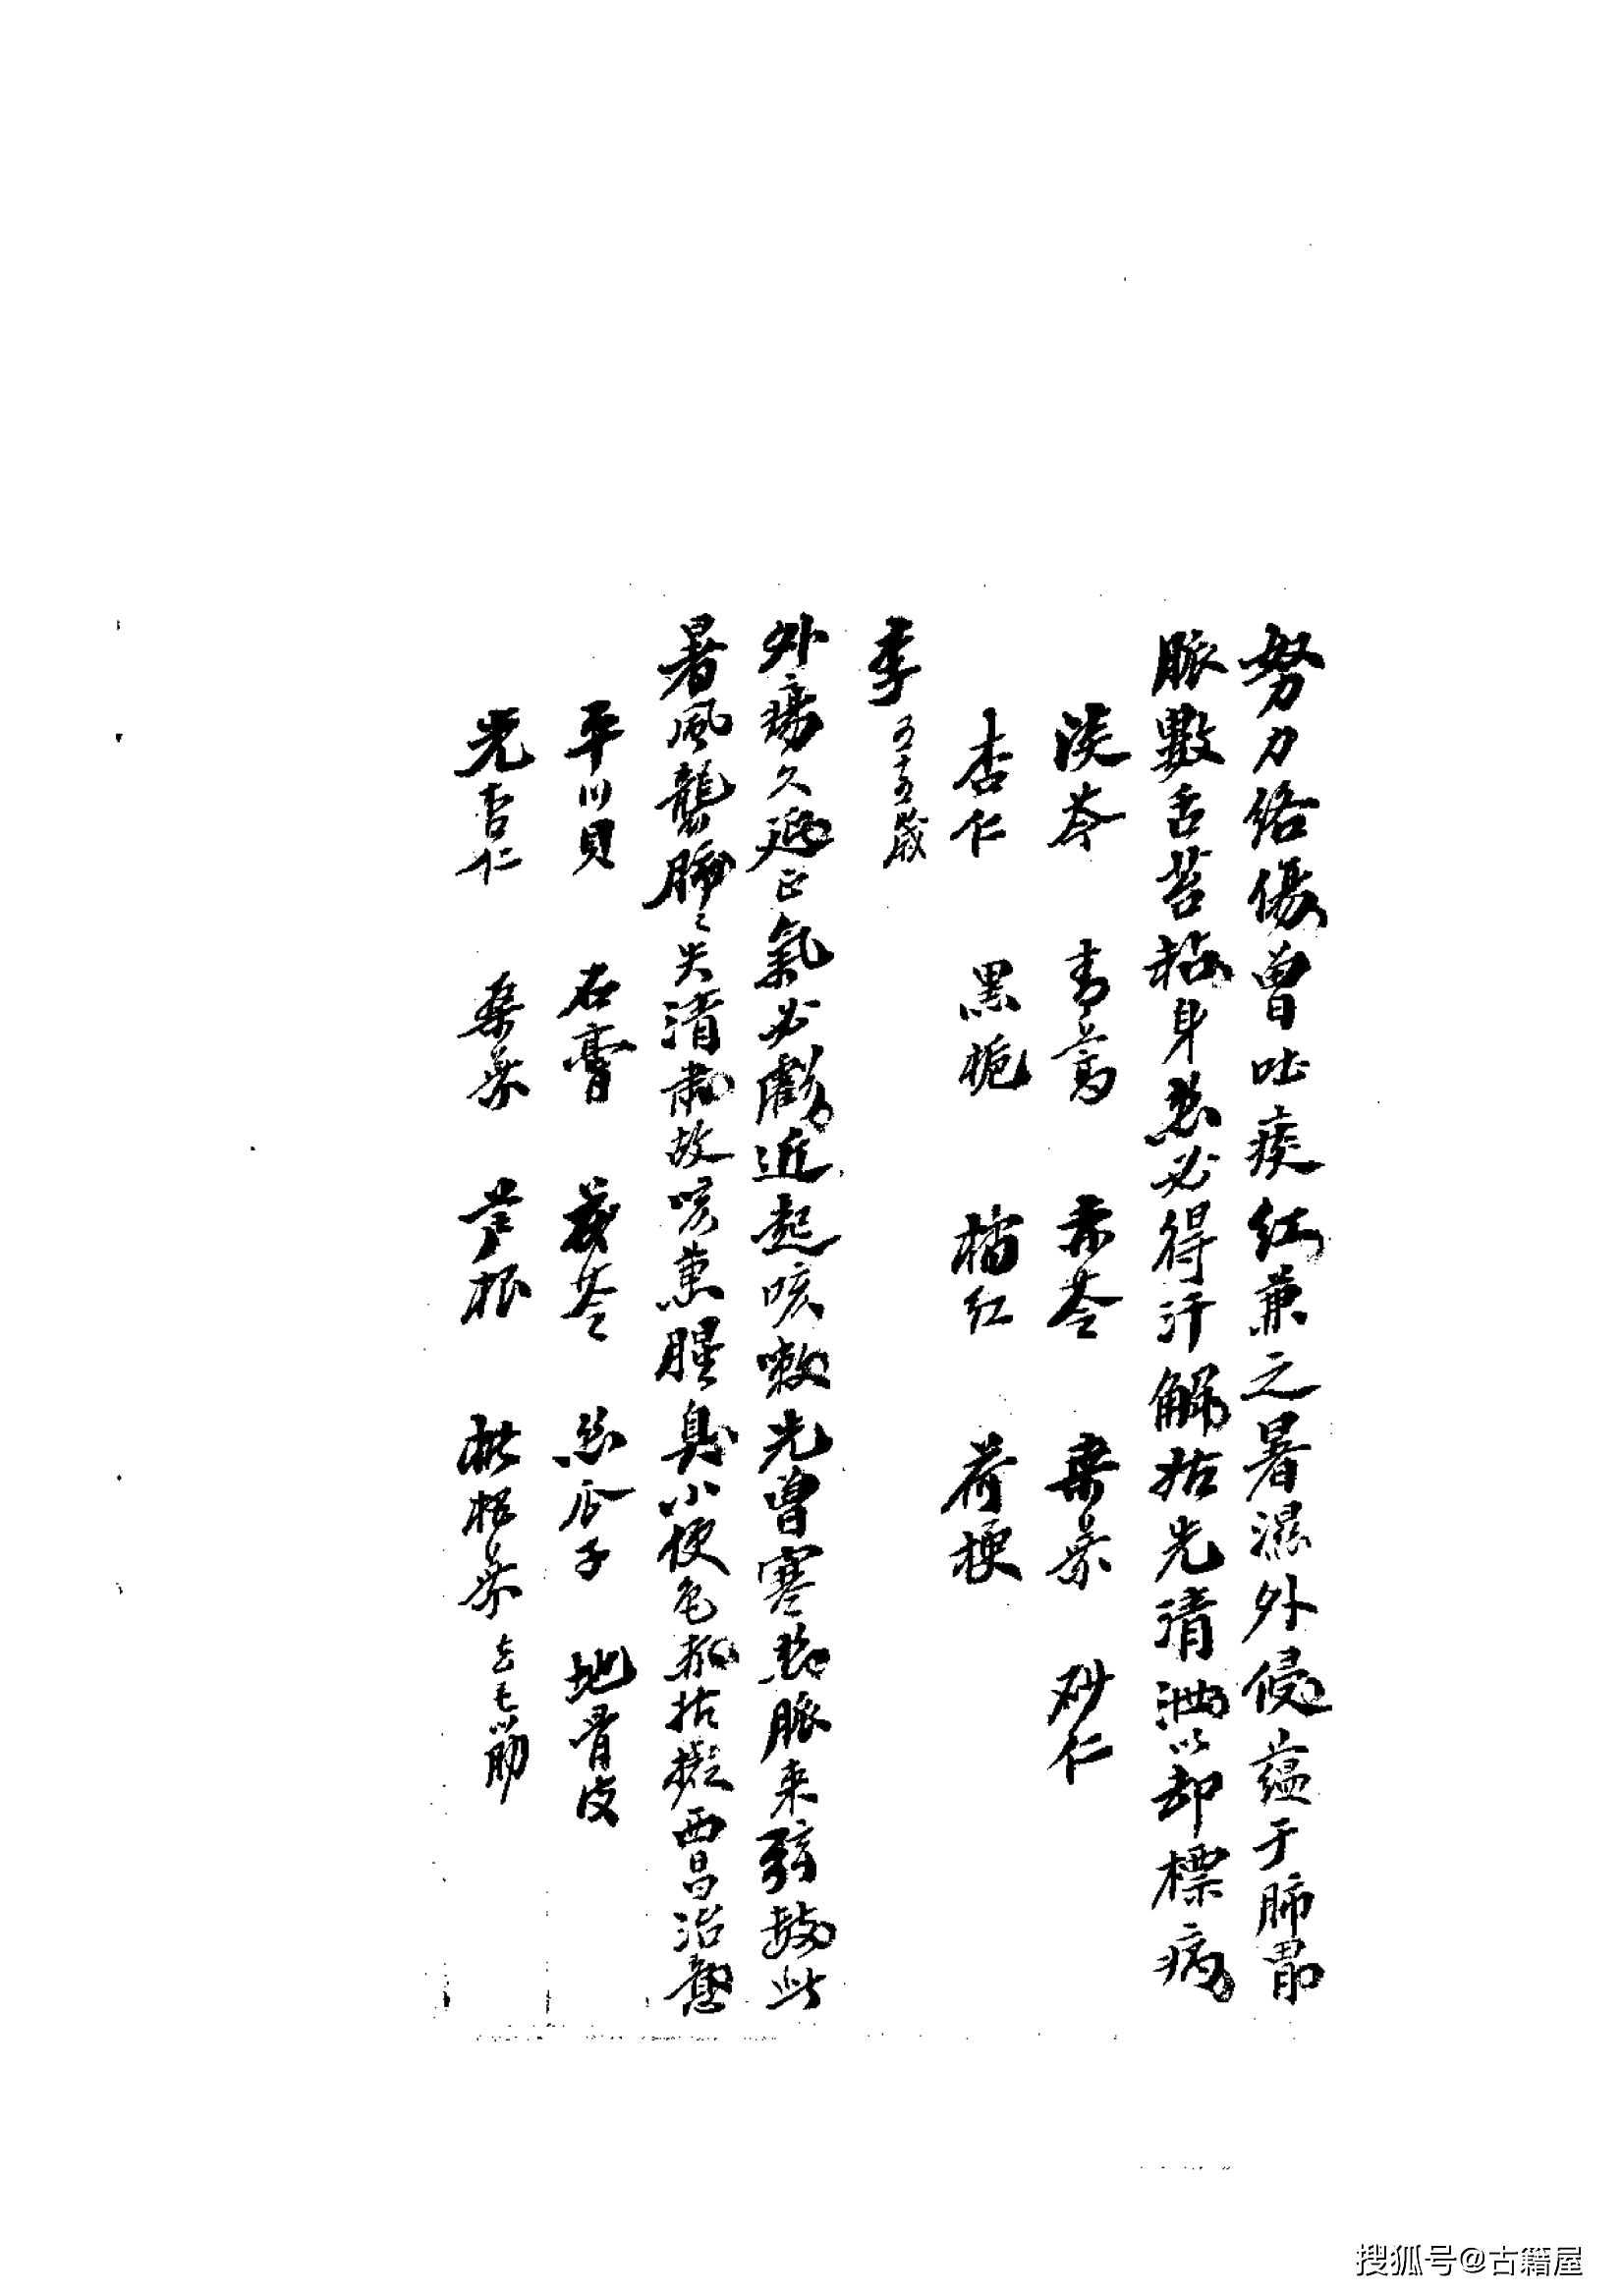 努力络傷曾吐痰红兼之暑濕外侵蕴于肺胃
脈數舌苔粘身熱必得汗解拈先清泄以却標病
淡芩 青蒿 赤苓 桑叶 砂仁
杏仁 黑栀 橘红 荷梗
李 五十五歲
外瘍久延正氣必虧近起咳嗽先曾寒熱脈来弦數此
暑風襲肺〻失清肅故咳熏腥臭小便色赤拈擬西昌治意
平川贝 石膏 茯苓 絲瓜子 地骨皮
光杏仁 桑叶 芦根 枇杷叶 去毛筋
搜狐号@古籍屋